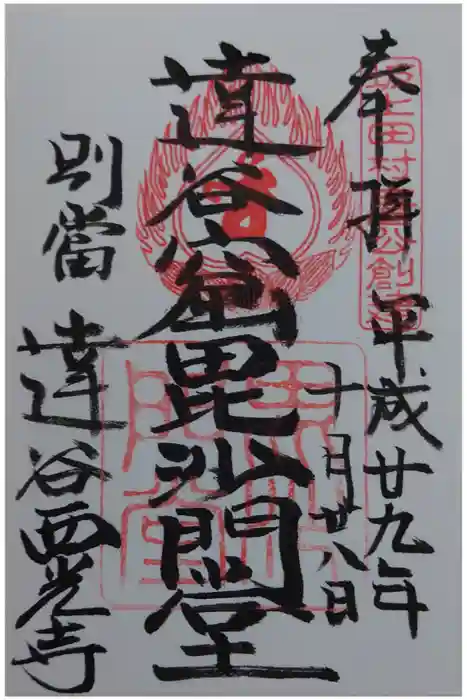 奉拝
平成廿九年
十月廿八日
達谷窟毘沙門堂
別當
達谷西光寺
坂上田村麿公創建